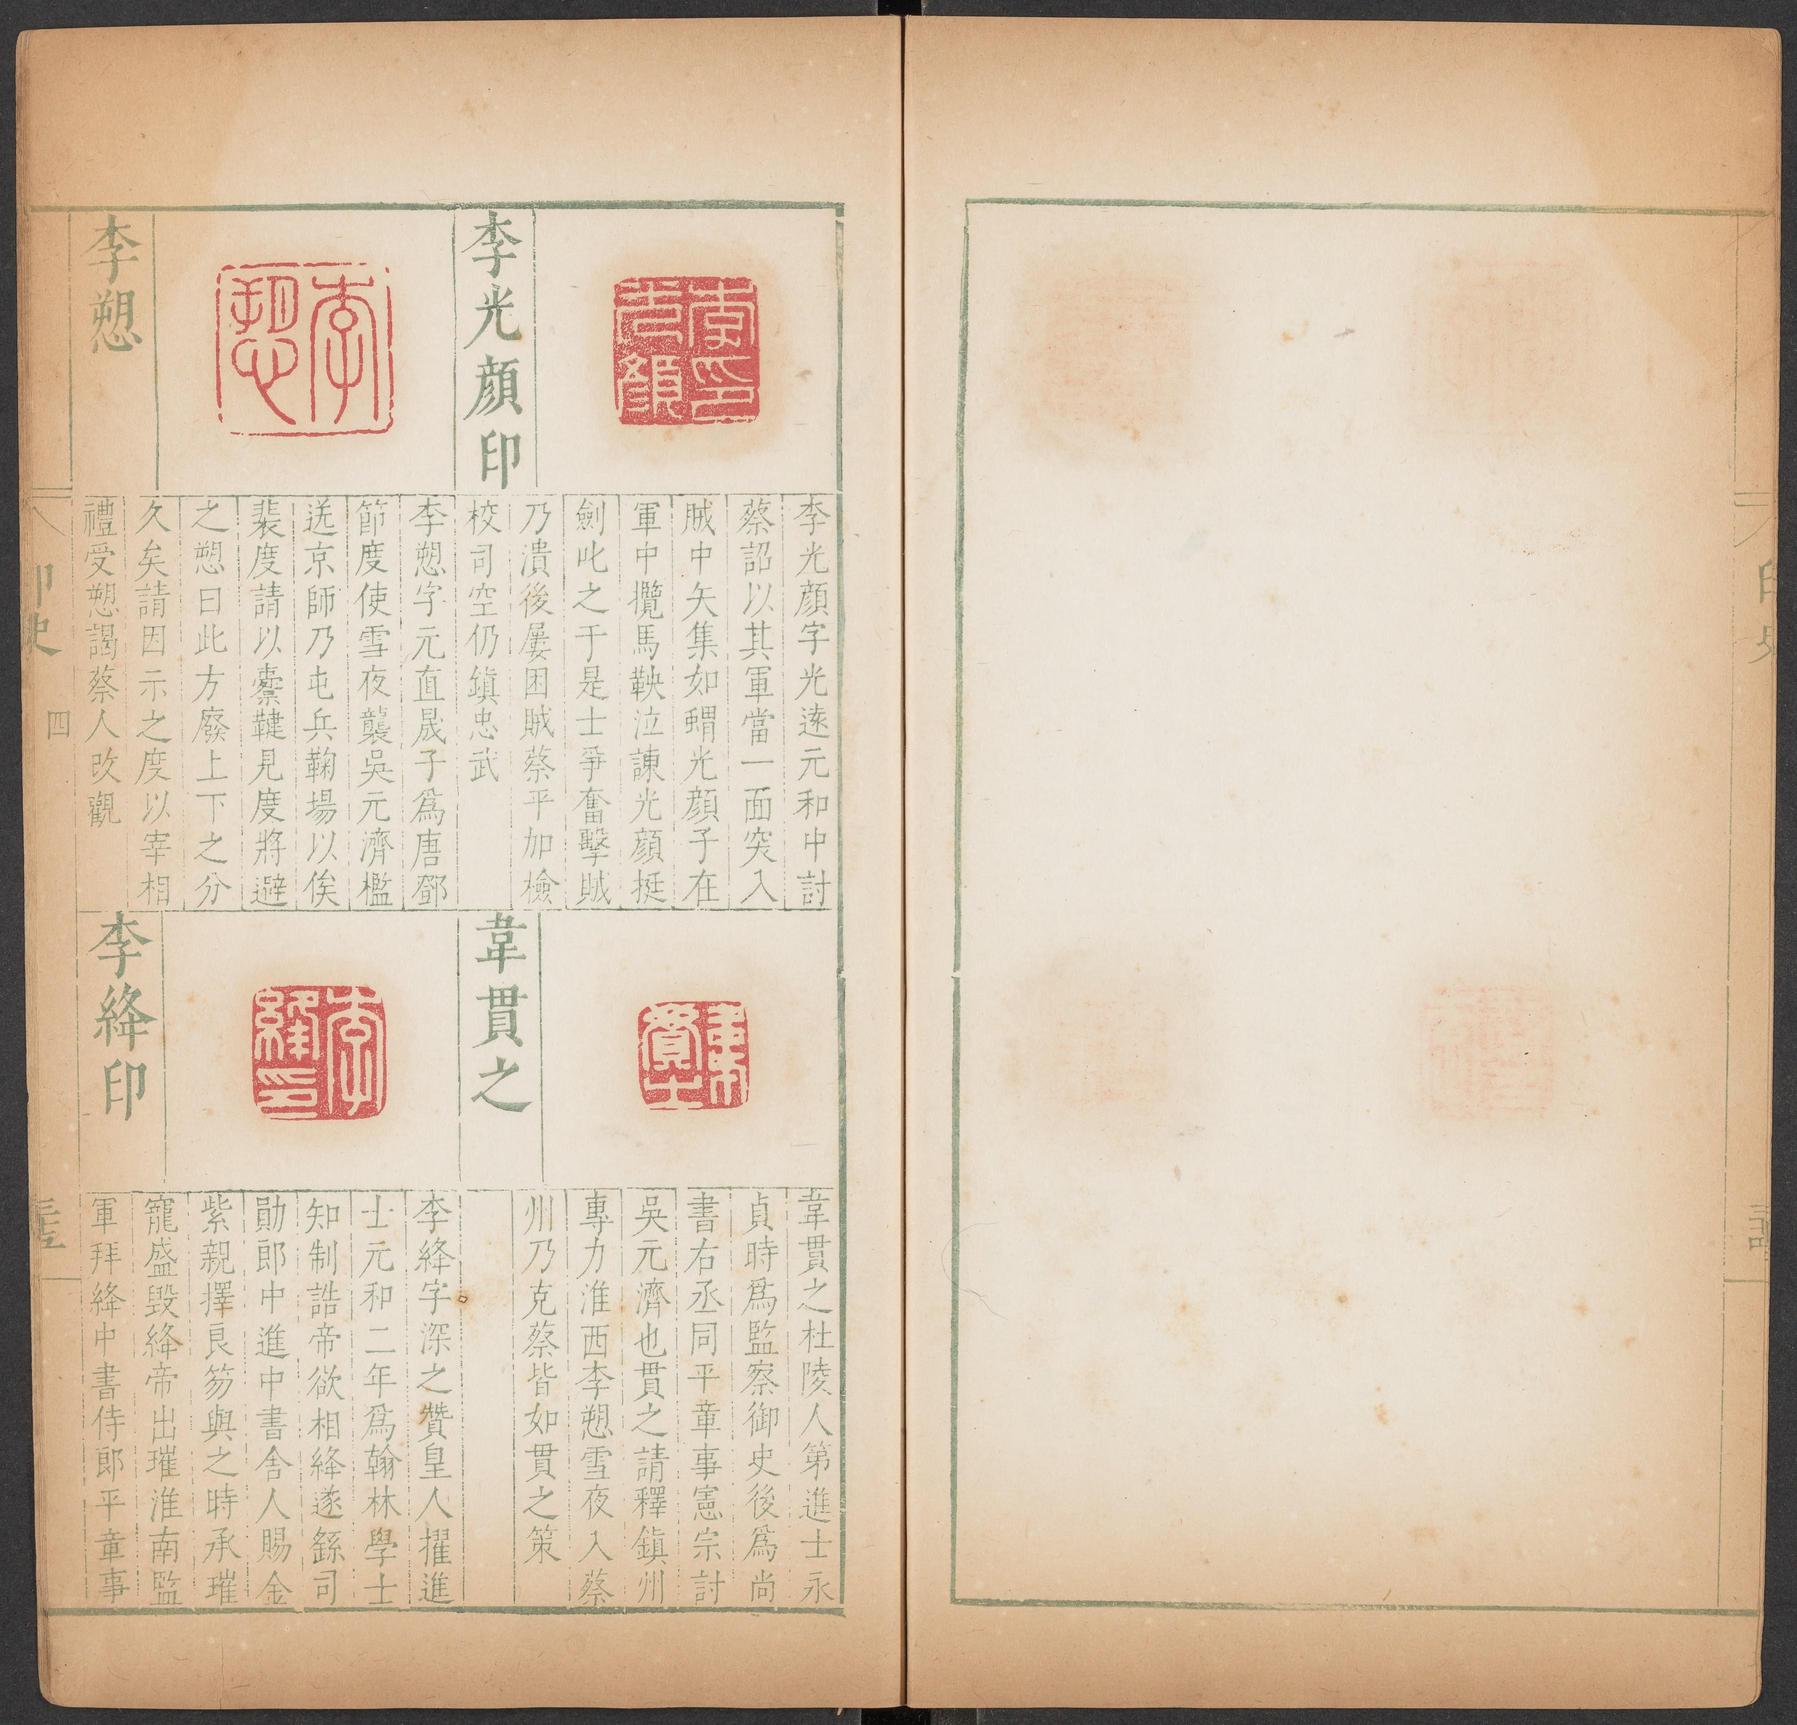 李光顔印
李光顔字光逺元和中討
蔡詔以其軍當一面突入
賊中矢集如蝟光顔子在
軍中攬馬鞅泣諌光顔挺
劍叱之于是士爭奮擊賊
乃潰後屢困賊蔡平加檢
校司空仍鎮忠武
李愬
李愬字元直晟子爲唐鄧
節度使雪夜襲吳元濟檻
送京師乃屯兵鞠場以俟
裴度請以櫜鞬見度將避
之愬曰此方廢上下之分
久矣請因示之度以宰相
禮受愬謁蔡人改觀
韋貫之
韋貫之杜陵人第進士永
貞時爲監察御史後爲尚
書右丞同平章事憲宗討
吳元濟也貫之請釋鎮州
專力淮西李愬雪夜入蔡
州乃克蔡皆如貫之策
李絳印
李絳字深之贊皇人擢進
士元和二年爲翰林學士
知制誥帝欲相絳遂繇司
勛郎中進中書舍人賜金
紫親擇良笏與之時承璀
寵盛毀絳帝出璀淮南監
軍拜絳中書侍郎平章事
印史
四